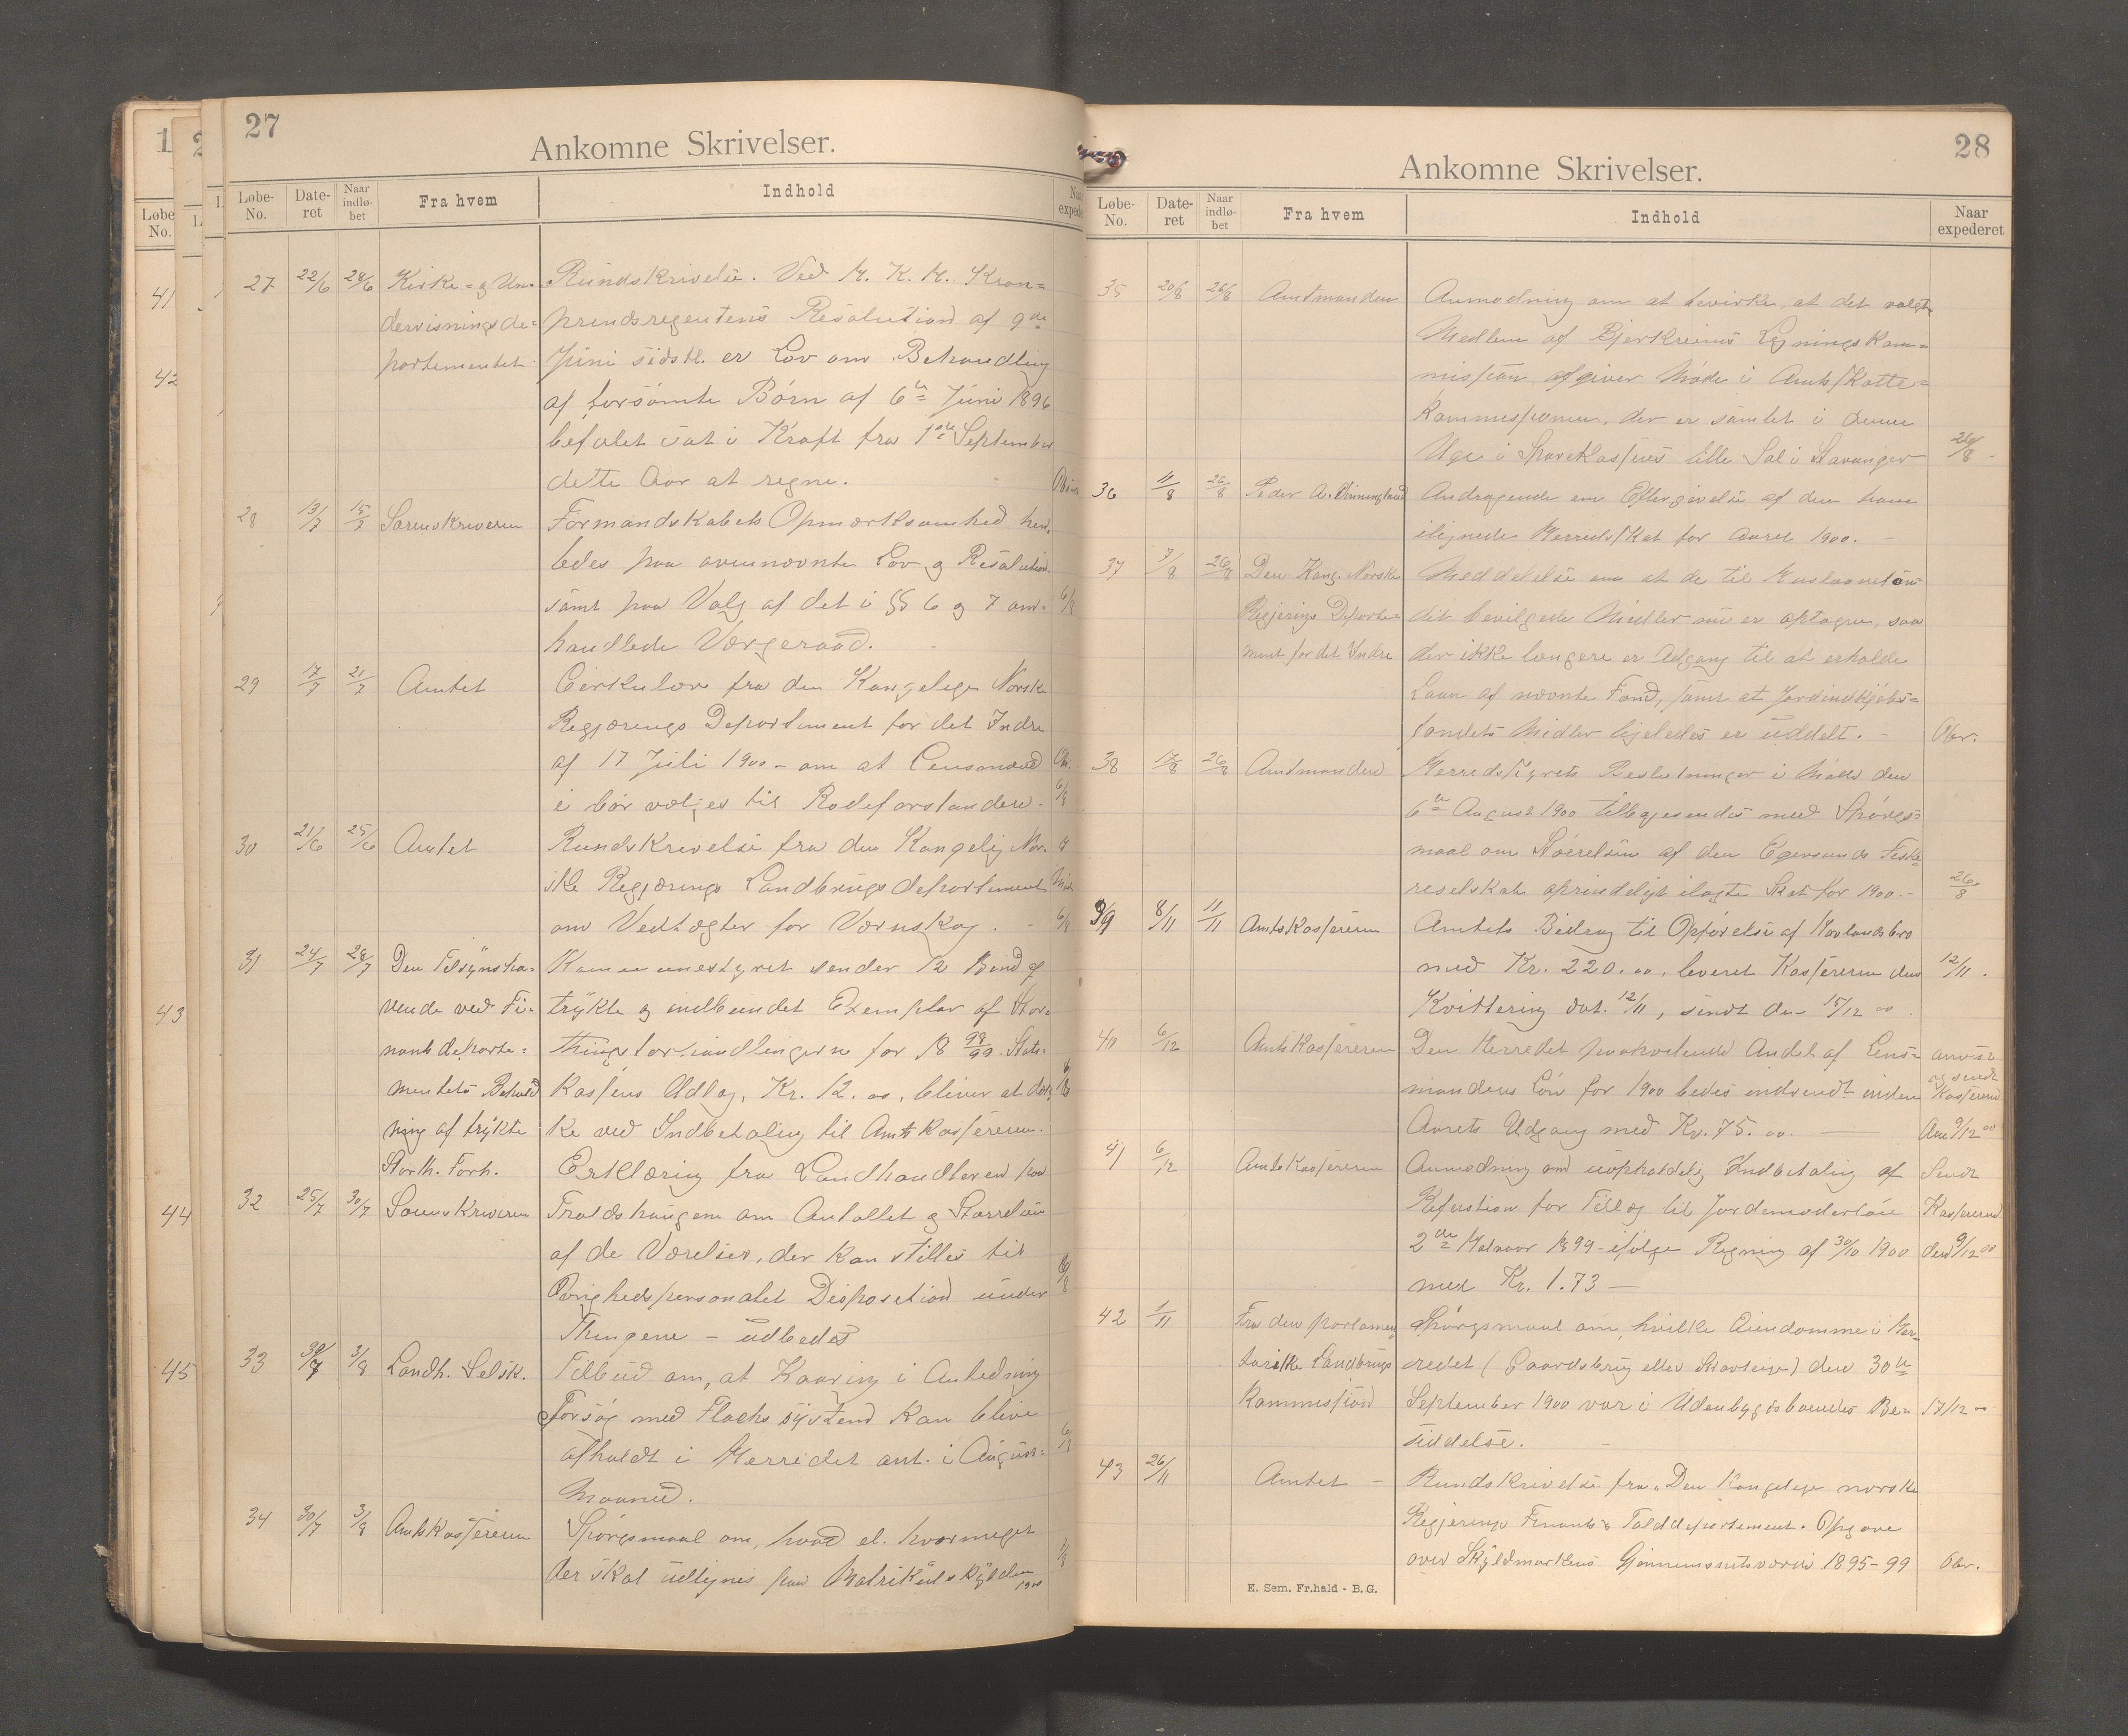 27
Ankomne Skrivelser.
Løbe-No. Date-ret Naar indlø-bet Fra hvem Indhold
27 22/6 28/6 Kirke- og Un- Rundskrivelse. Ved H. K. H. Kron=
dervisningsde= prindsregentens Resolution af 9de
partementet Juni sidstl. er Lov om Behandling
af forsømte Børn af 6te Juni 1896
befalet sat i Kraft fra 1ste September
dette Aar at regne.
28 13/7 15/7 Sorenskriveren Formandskabets Opmærksomhed hen-
ledes paa ovennævnte Lov og Resolution
samt paa Valg af det i §§ 6 og 7 om- 6/8
handlede Værgeraad.
29 17/7 21/7 Amtet Cirkulære fra den Kongelige Norske
Regjerings Departement for det Indre
af 17 Juli 1900 - om at Lensmænd
ei bør vælges til Rodeforstandere. 6/8
30 21/6 25/6 Amtet Rundskrivelse fra den Kongelig Nor-
ske Regjerings Landbrugsdepartement
om Vedtægter for Værnskog. 6/8
31 24/7 28/7 Den Tilsynsha- Kommunestyret sender 12 Bind af
vende ved Fi- trykte og indbundet Exemplar af Stor-
nantsdeparte= thingsforhandlingerne for 18 98/99. Stats-
mentets Behold kassens Udlæg, Kr. 12.00, bliver at dæk-
ning af trykte ke ved Indbetaling til Amtskassereren.
Storth. Forh. Erklæring fra Landhandleren paa
32 25/7 30/7 Sorenskriveren Troldshaugen om Antallet og Størrelsen
af de Værelser, der kan stilles til
Øvrighedspersonalet Disposition under 6/8
Thingene - udbedes
33 30/7 3/8 Landh. Selsk. Tilbud om, at Kaaring i Anledning
Forsøg med Flachs system kan blive
afholdt i Herredet ant. i August= 6/8
Maaned.
34 30/7 3/8 Amtskassereren Spørgsmaal om, hvad el. hvormeget
der skal udlignes paa Matrikulskylden 1900
28
Ankomne Skrivelser.
Løbe-No. Date-ret Naar indlø-bet Fra hvem Indhold Naar expederet
35 20/8 26/8 Amtmanden Anmodning om at bevirke, at det valgte
Medlem af Bjerkreims Ligningskom=
mission, afgiver Møde i Amtsskatte=
kommissionen, der er samlet i denne
Uge i Sparekassens lille Sal i Stavanger 26/8
36 11/8 26/8 Peder A. Andragende om Eftergivelse af den ham
ilignede Herredsskat for Aaret 1900.
37 7/8 26/8 Den Kong. Norske Meddelelse om at de til Huslaanefon
Regjerings Departe= det bevilgede Midler nu er optagne, saa
ment for det Indre der ikke længere er Adgang til at erholde
Laan af nævnte Fond, samt at Jordindkjøbs=
fondets Midler ligeledes er uddelt. Obr.
38 17/8 26/8 Amtmanden Herredstyrets Beslutninger i Møde den
6te August 1900 tilbagesendes med Spørgs=
maal om Størrelsen af den Egersunds Fiske=
riselskab oprindeligt ilagte Skat for 1900. 26/8
39 8/11 11/11 Amtskassereren Amtets Bidrag til Opførelse af Hovlandsbro
med Kr. 220.00, leveret Kassereren den 12/11.
Kvittering dat. 12/11, sendt den 15/12 00
40 6/12 Amtskassereren Den Herredet paahvilende Andel af Lens= anvist
mandens Løn for 1900 bedes indsendt inden og sendt Kassereren
Aarets Udgang med Kr. 75.00. den 9/12 00
41 6/12 Amtskassereren Anmodning om uopholdelig Indbetaling af Sendt
Refustion for Tillæg til Jordemoderløn Kassereren
2det Halvaar 1899 - ifølge Regning af 30/10 1900 den 9/12 00
med Kr. 1.73
42 1/11 Fra den parlamen Spørgsmaal om, hvilke Eiendomme i Her-
tariske Landbrugs redet (Gaardsbrug eller Skovteige) den 30te
kommission September 1900 var i Udenbygdsboendes Be= 17/12 00
siddelse.
43 26/11 Amtet Rundskrivelse fra "Den Kongelige norske
Regjerings Finants & Tolddepartement. Opgave
over Skyldmarkens Gjennemsnitsværdi 1895-99 Obr.
E. Sem. Fr.hald - B.G.
41
42
43
44
45